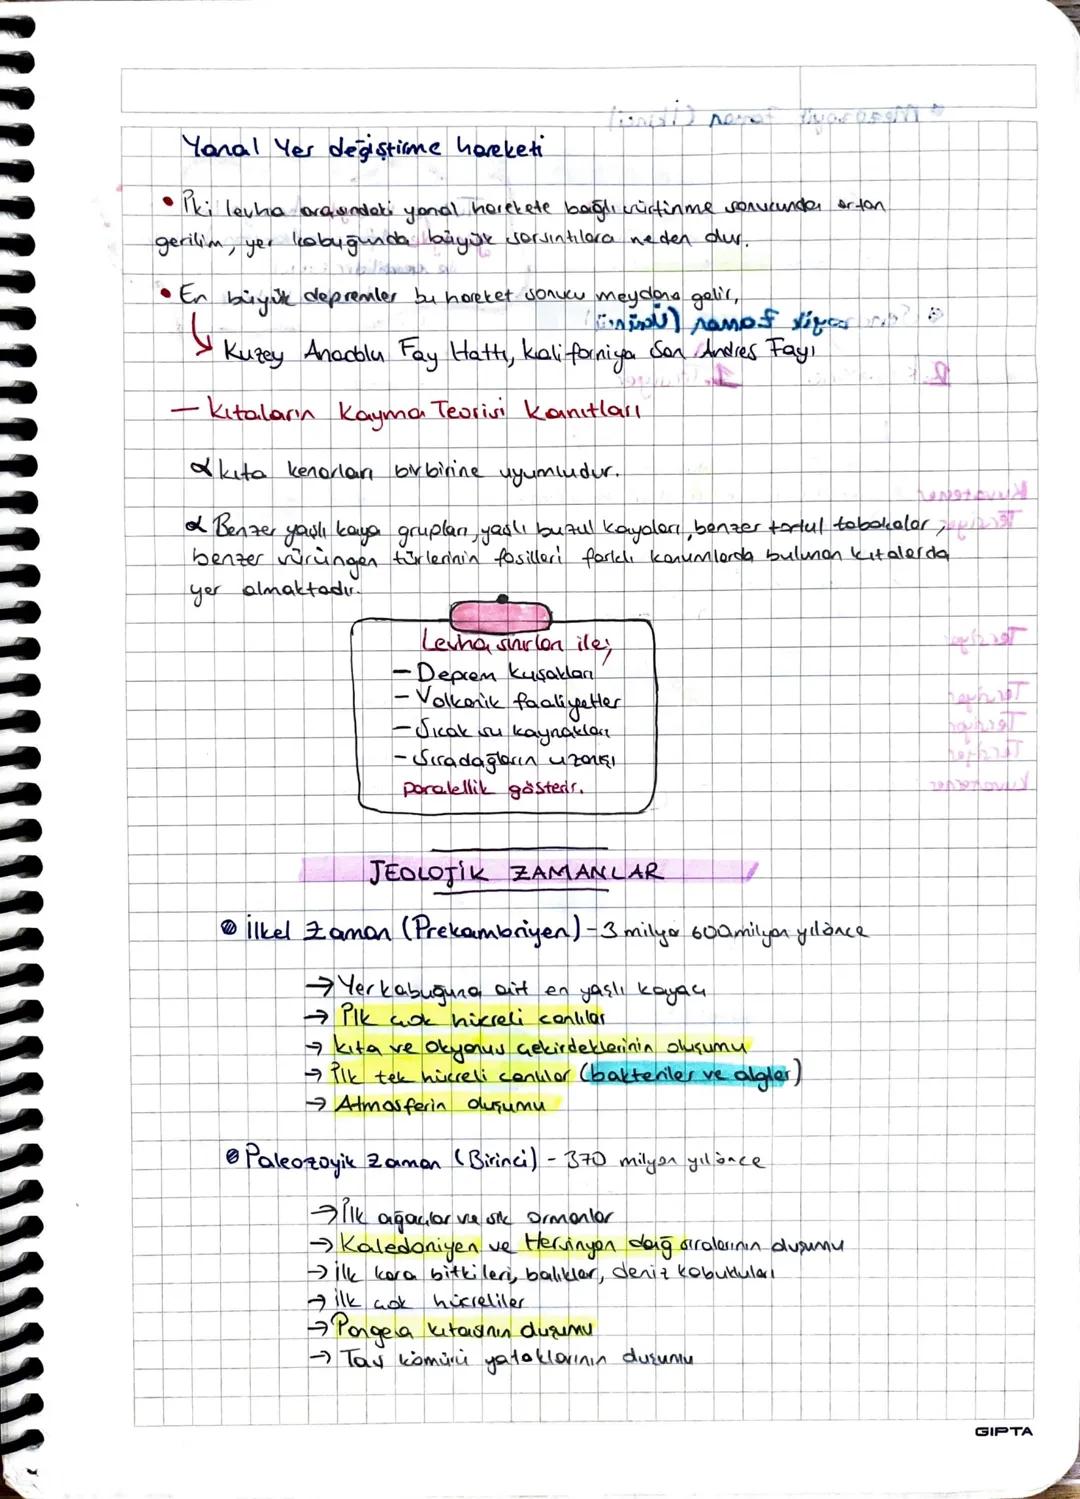 Yanal Yer değiştirme hareketi
• İki levha arasındaki yanal harekete bağlı sürtünme sonucunda artan
gerilim, yer kabuğunda büyük sarsıntılara neden olur.
• En büyük depremler bu hareket sonucu meydana gelir,
Kuzey Anadolu Fay Hattı, Kaliforniya San Andres Fayı
— Kıtaların Kayma Teorisi Kanıtları
α kıta kenarları birbirine uyumludur.
α Benzer yaşlı kaya grupları, yaşlı buzul kayaları, benzer tortul tabakalar,
benzer sürüngen türlerinin fosilleri farklı konumlarda bulunan kıtalarda
yer almaktadır.
Levha sınırları ile;
- Deprem kuşakları
- Volkanik faaliyetler
- Sıcak su kaynakları
- Sıradağların uzanışı
paralellik gösterir.
JEOLOJİK ZAMANLAR
İlkel Zaman (Prekambriyen) - 3 milyar 600 milyon yıl önce
→ Yer kabuğuna ait en yaşlı kayaç
→ İlk çok hücreli canlılar
→ kıta ve Okyanus çekirdeklerinin oluşumu
→ İlk tek hücreli canlılar (bakteriler ve algler)
→ Atmosferin oluşumu
Paleozoyik Zaman (Birinci) - 370 milyon yıl önce
→ İlk ağaçlar ve sık ormanlar
→ Kaledoniyen ve Hersinyen dağ sıralarının oluşumu
→ ilk kara bitkileri, balıklar, deniz kabukluları
→ ilk çok hücreliler
→ Pangea kıtasının oluşumu
→ Taş kömürü yataklarının oluşumu
GIPTA